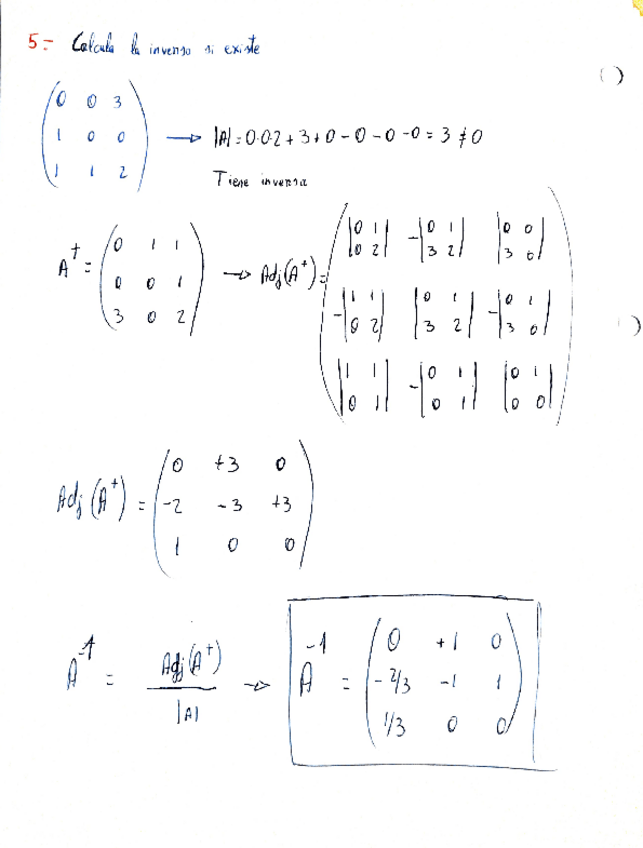 5.- Calcula la inversa si existe
( )
( 0 0 3 )
( 1 0 0 ) → |A| = 0·0·2 + 3 + 0 - 0 - 0 - 0 = 3 ≠ 0
( 1 1 2 )
Tiene inversa
A^t = ( 0 1 1 ; 0 0 1 ; 3 0 2 ) → Adj(A^t) =
( |0 1; 0 2| -|0 1; 3 2| |0 0; 3 0| )
( -|1 1; 0 2| |0 1; 3 2| -|0 1; 3 0| )
( |1 1; 0 1| -|0 1; 0 1| |0 1; 0 0| )
)
Adj(A^t) = ( 0 +3 0 ; -2 -3 +3 ; 1 0 0 )
A^-1 = Adj(A^t) / |A| → A^-1 = ( 0 +1 0 ; -2/3 -1 1 ; 1/3 0 0 )